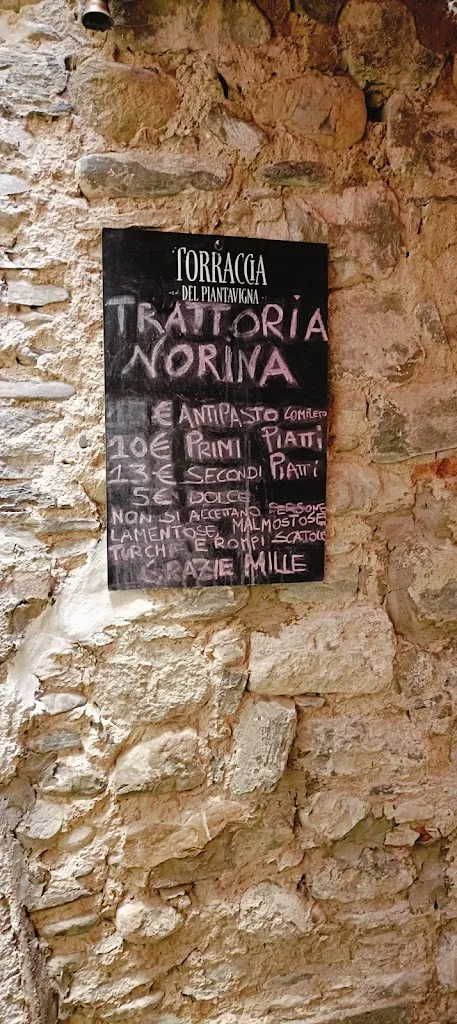 TORRACCIA
DEL PIANTAVIGNA
TRATTORIA
NORINA
€ ANTIPASTO COMPLETO
10€ PRIMI PIATTI
13€ SECONDI PIATTI
5€ DOLCE
NON SI ACCETTANO PERSONE
LAMENTOSE, MALMOSTOSE
TURCHIE E ROMPI SCATOLE
GRAZIE MILLE